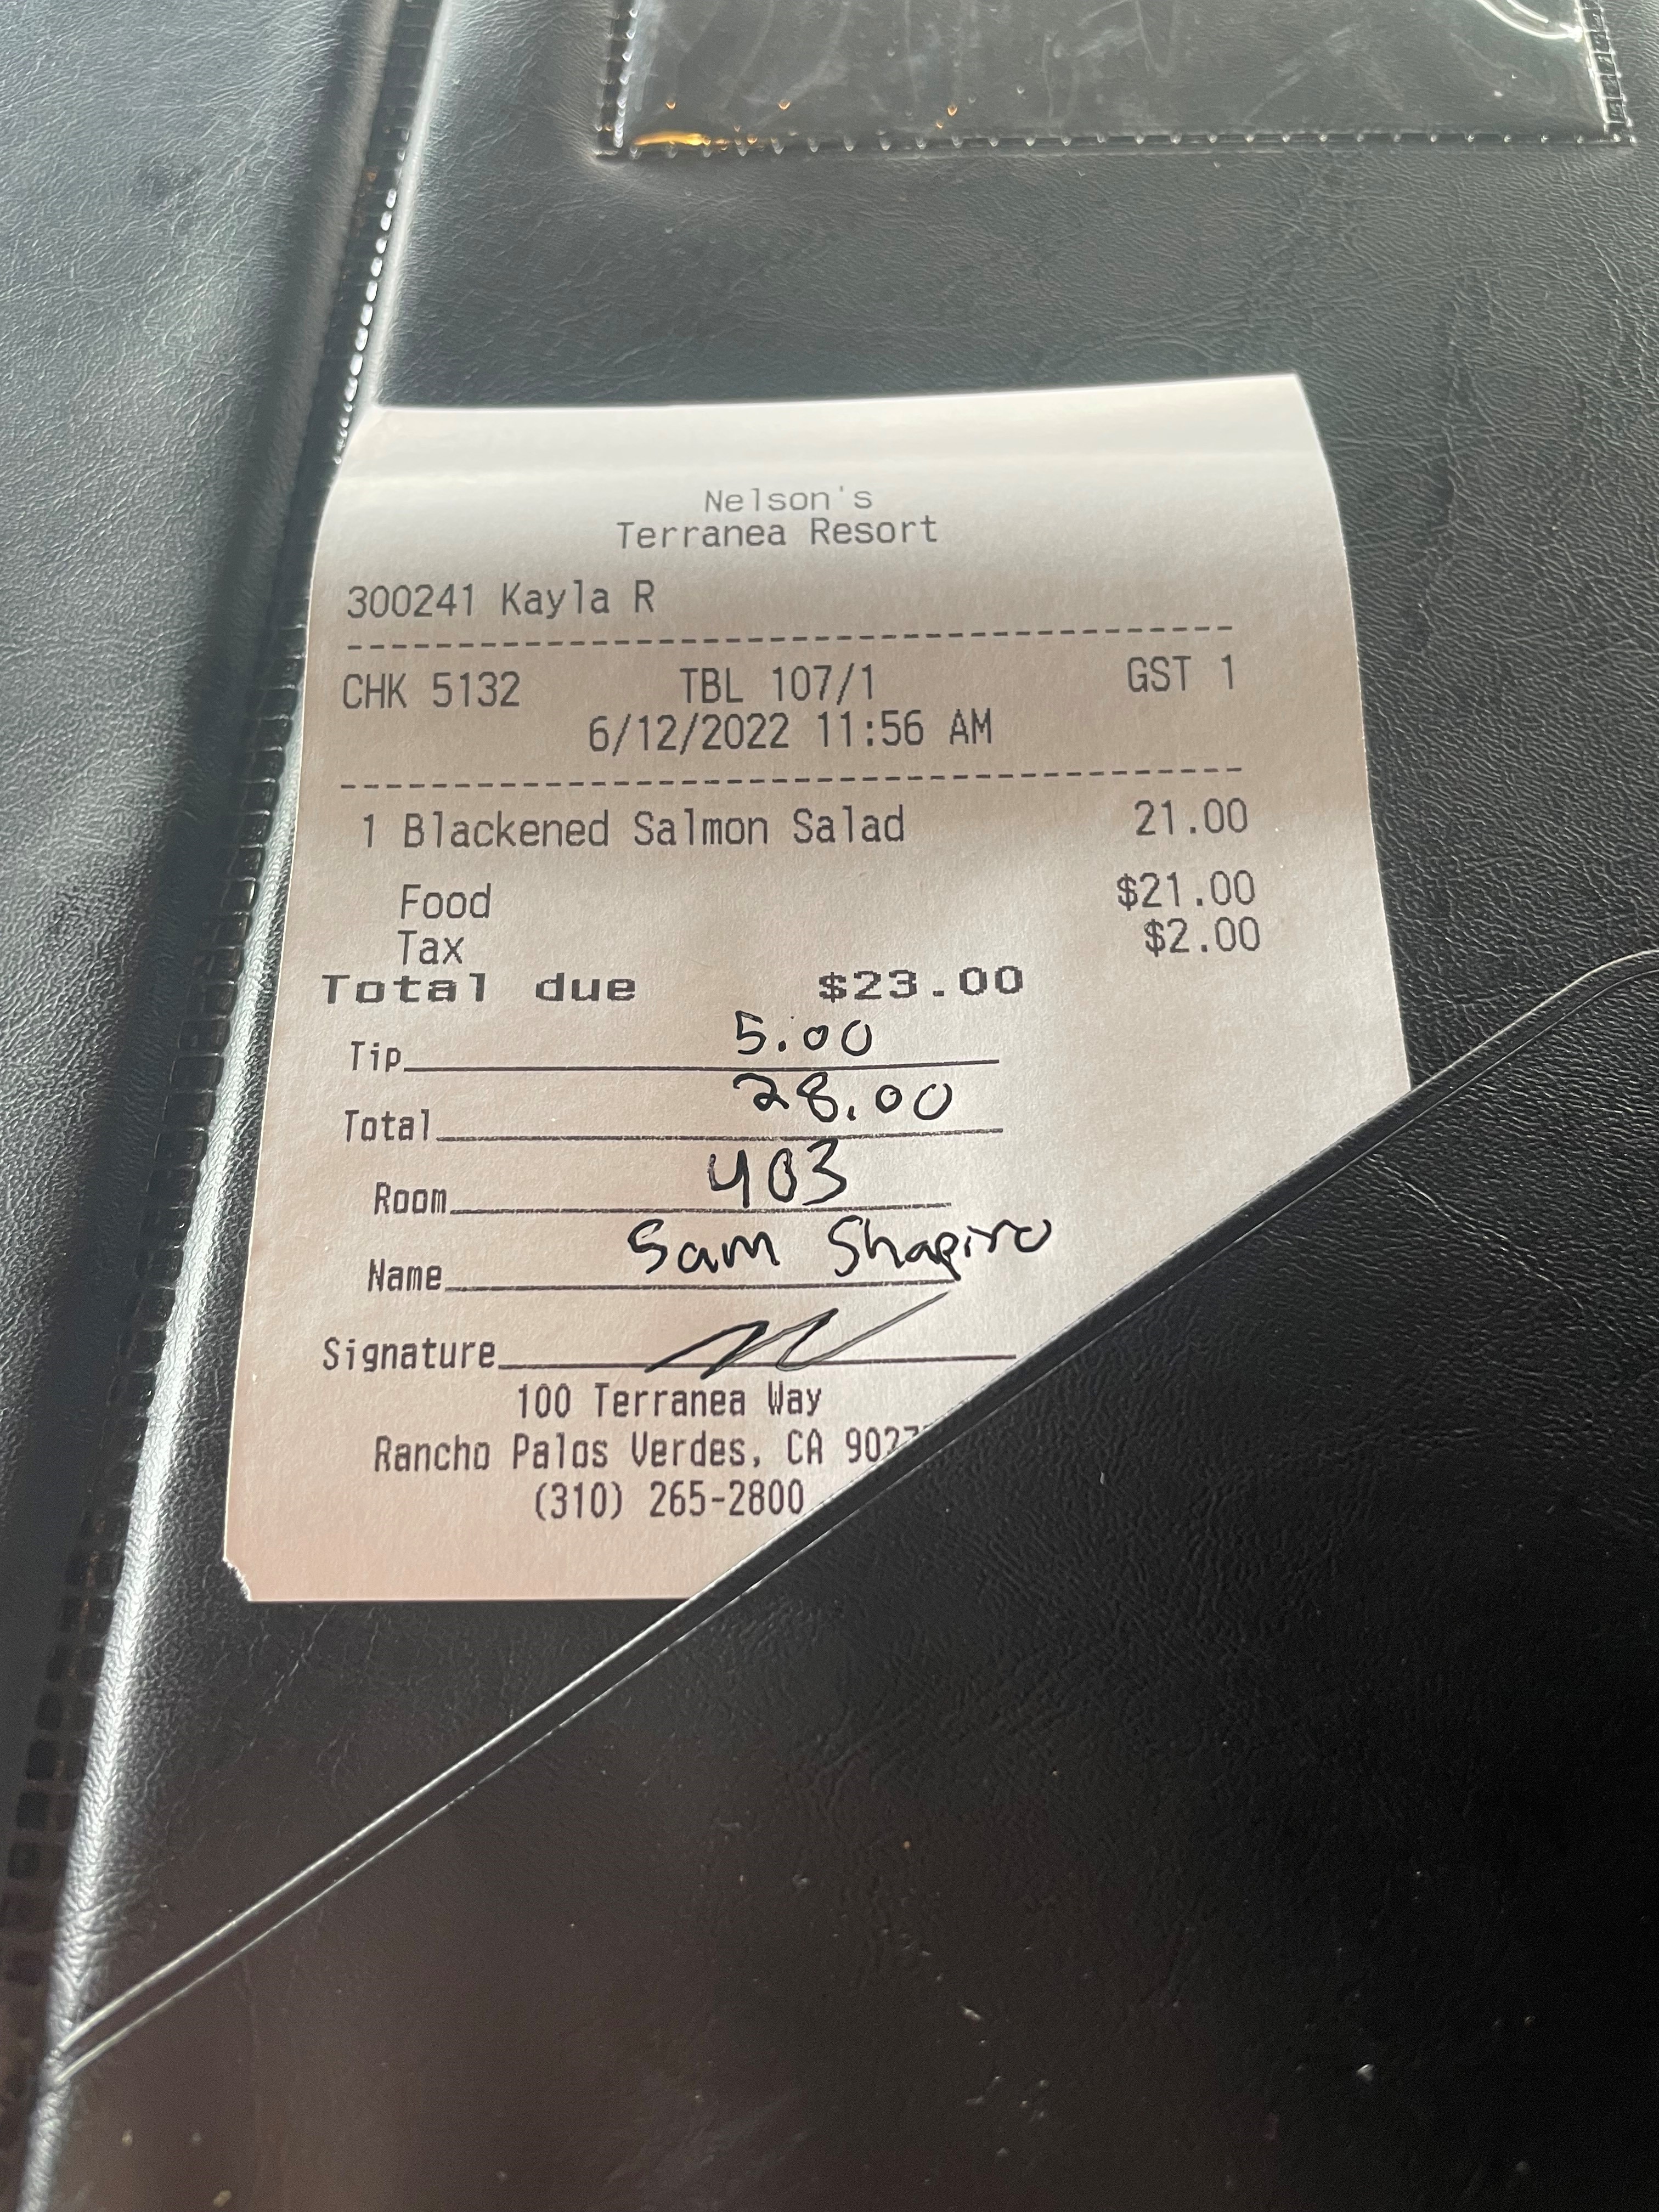 Nelson's
Terranea Resort
300241 Kayla R
CHK 5132 TBL 107/1 GST 1
6/12/2022 11:56 AM
1 Blackened Salmon Salad 21.00
Food $21.00
Tax $2.00
Total due $23.00
Tip 5.00
Total 28.00
Room 403
Name Sam Shapiro
Signature
100 Terranea Way
Rancho Palos Verdes, CA
(310) 265-2800